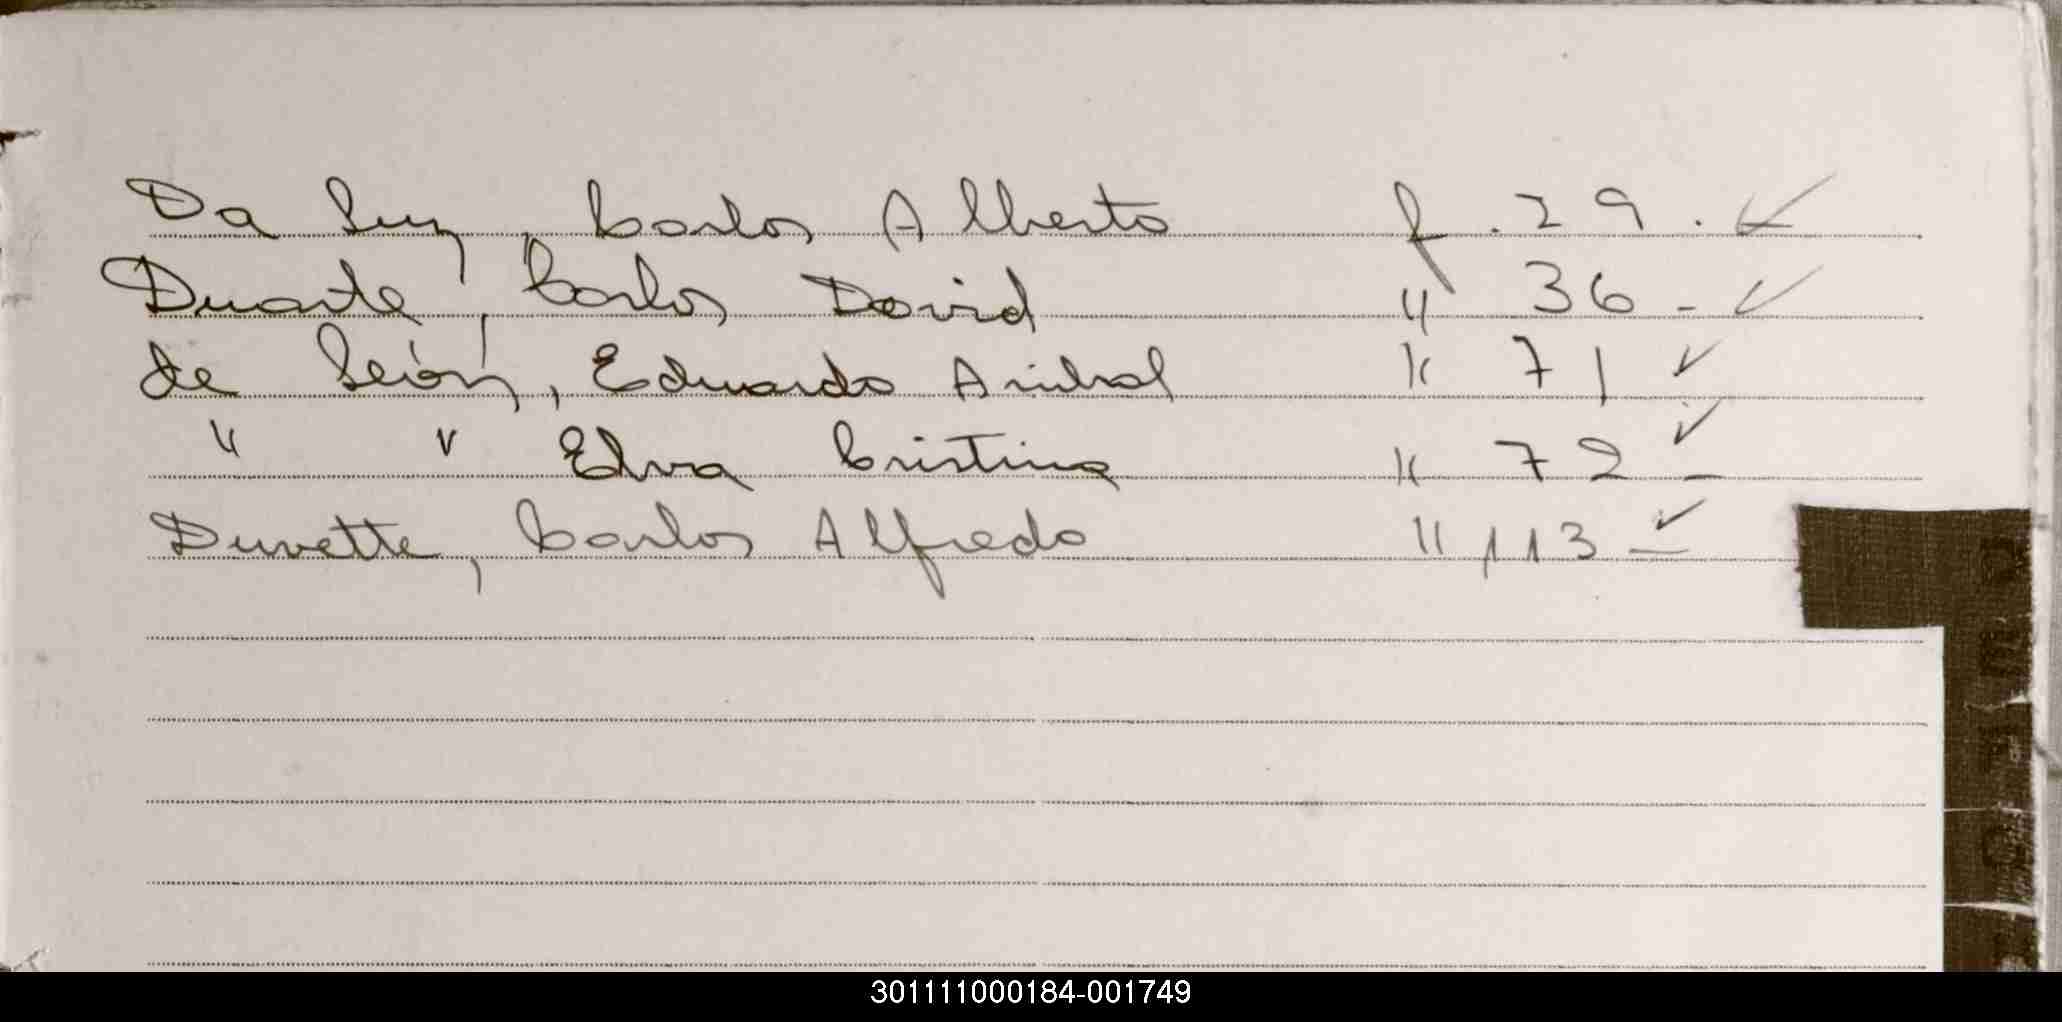 Da Luz, Carlos Alberto f. 29. ✓
Duarte, Carlos David " 36 - ✓
de León, Eduardo Anibal " 71 ✓
" " Elva Cristina " 72 - ✓
Duvette, Carlos Alfredo " 113 - ✓
301111000184-001749